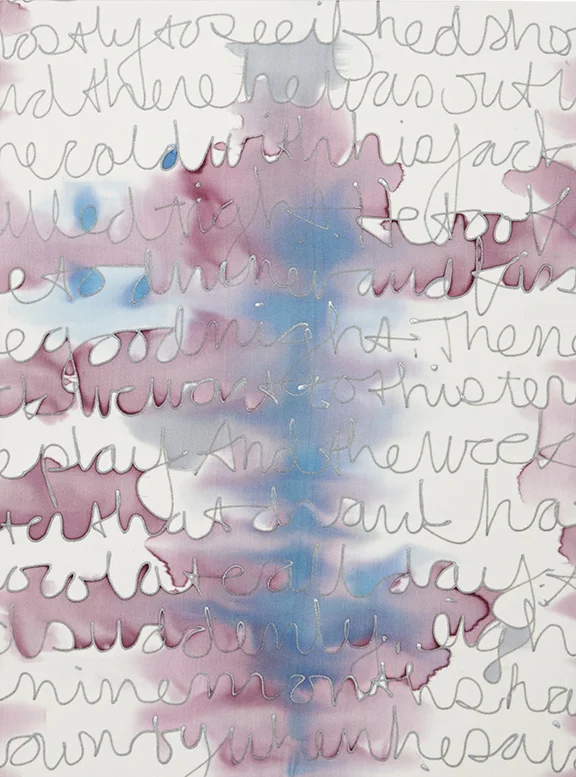 ostly to see if hed sho
nd there he was out i
he cold with his jack
ulled tight. He took
e to dinner and kiss
e good night. The ne
ek we went to this ter
e play. And the week
ter that drank ho
ocolate all day. A
d suddenly, eigh
nine months ha
own by when he sai